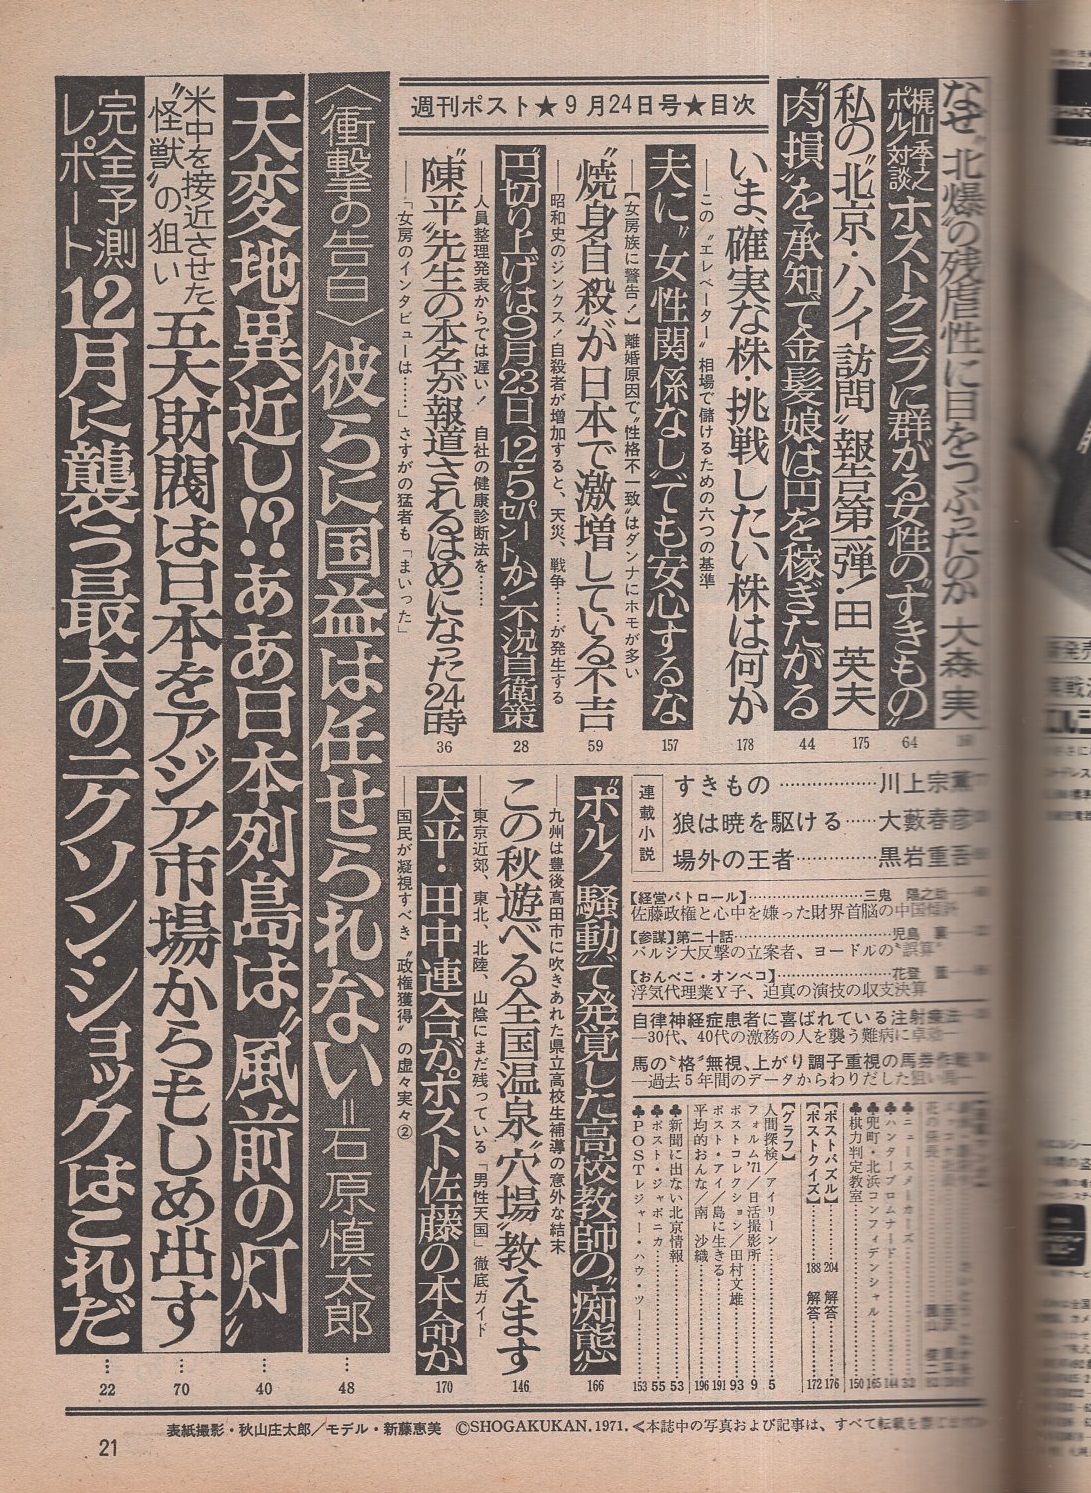 週刊ポスト★9月24日号★目次
なぜ〝北爆〟の残虐性に目をつぶったのか 大森 実
梶山季之ポルノ対談 ホストクラブに群がる女性の〝すきもの〟 64
私の〝北京・ハノイ訪問〟報告第一弾! 田 英夫 175
〝肉損〟を承知で金髪娘は円を稼ぎたがる 44
いま、確実な株・挑戦したい株は何か 178
――この〝エレベーター〟相場で儲けるための六つの基準
夫に〝女性関係なし〟でも安心するな 157
――【女房族に警告!】離婚原因で〝性格不一致〟はダンナにホモが多い
〝焼身自殺〟が日本で激増している不吉 59
――昭和史のジンクス!自殺者が増加すると、天災、戦争……が発生する
〝円切り上げ〟は9月23日、12・5パーセントか!不況自衛策 28
――人員整理発表からでは遅い! 自社の健康診断法を……
〝陳平〟先生の本名が報道されるはめになった24時 36
――「女房のインタビューは……」さすがの猛者も「まいった」
〈衝撃の告白〉彼らに国益は任せられない=石原慎太郎 48
天変地異近し!?ああ日本列島は〝風前の灯〟 40
米中を接近させた〝怪獣〟の狙い 五大財閥は日本をアジア市場からもしめ出す 70
完全予測レポート 12月に襲う最大のニクソン・ショックはこれだ 22
連載小説
すきもの……川上宗薫
狼は暁を駆ける……大藪春彦
場外の王者……黒岩重吾
【経営パトロール】……三鬼 陽之助
佐藤政権と心中を嫌った財界首脳の中国傾斜
【参謀】第二十話……児島 襄
バルジ大反撃の立案者、ヨードルの〝誤算〟
【おんべこ・オンペコ】……花登 筐
浮気代理業Y子、迫真の演技の収支決算
自律神経症患者に喜ばれている注射療法
―30代、40代の激務の人を襲う難病に卓効―
馬の〝格〟無視、上がり調子重視の馬券作戦
―過去5年間のデータからわりだした狙い馬―
〝ポルノ騒動〟で発覚した高校教師の〝痴態〟 166
――九州は豊後高田市に吹きあれた県立高校生補導の意外な結末
この秋遊べる全国温泉〝穴場〟教えます 146
――東京近郊、東北、北陸、山陰にまだ残っている「男性天国」徹底ガイド
大平・田中連合がポスト佐藤の本命か 170
――国民が凝視すべき〝政権獲得〟の虚々実々②
♣ニュースメーカーズ……32
♣ハンタープロムナード……144
♣兜町・北浜コンフィデンシャル……165
♣棋力判定教室……150
【ポストパズル】……204 解答……176
【ポストクイズ】……188 解答……172
【グラフ】
人間探検/アイリーン……5
フォルム'71/日活撮影所……9
ポストコレクション/田村文雄……93
ポスト・アイ/島に生きる……191
平均的おんな/南 沙織……196
♣新聞に出ない北京情報……53
♣ポスト・ジャポニカ……55
♣POSTレジャー・ハウ・ツー……153
表紙撮影・秋山庄太郎/モデル・新藤恵美 ©SHOGAKUKAN.1971.≪本誌中の写真および記事は、すべて転載を禁じます
21